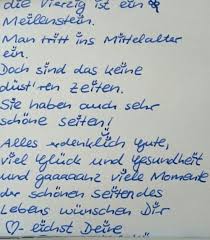 die Vierzig ist ein
Meilenstein.
Man tritt ins Mittelalter
ein.
Doch sind das keine
düst'ren Zeiten.
Sie haben auch sehr
schöne Seiten!
Alles erdenklich Gute,
viel Glück und Gesundheit
und gaaaanz viele Momente
der schönen Seiten des
Lebens wünschen Dir
♡-lichst Deine